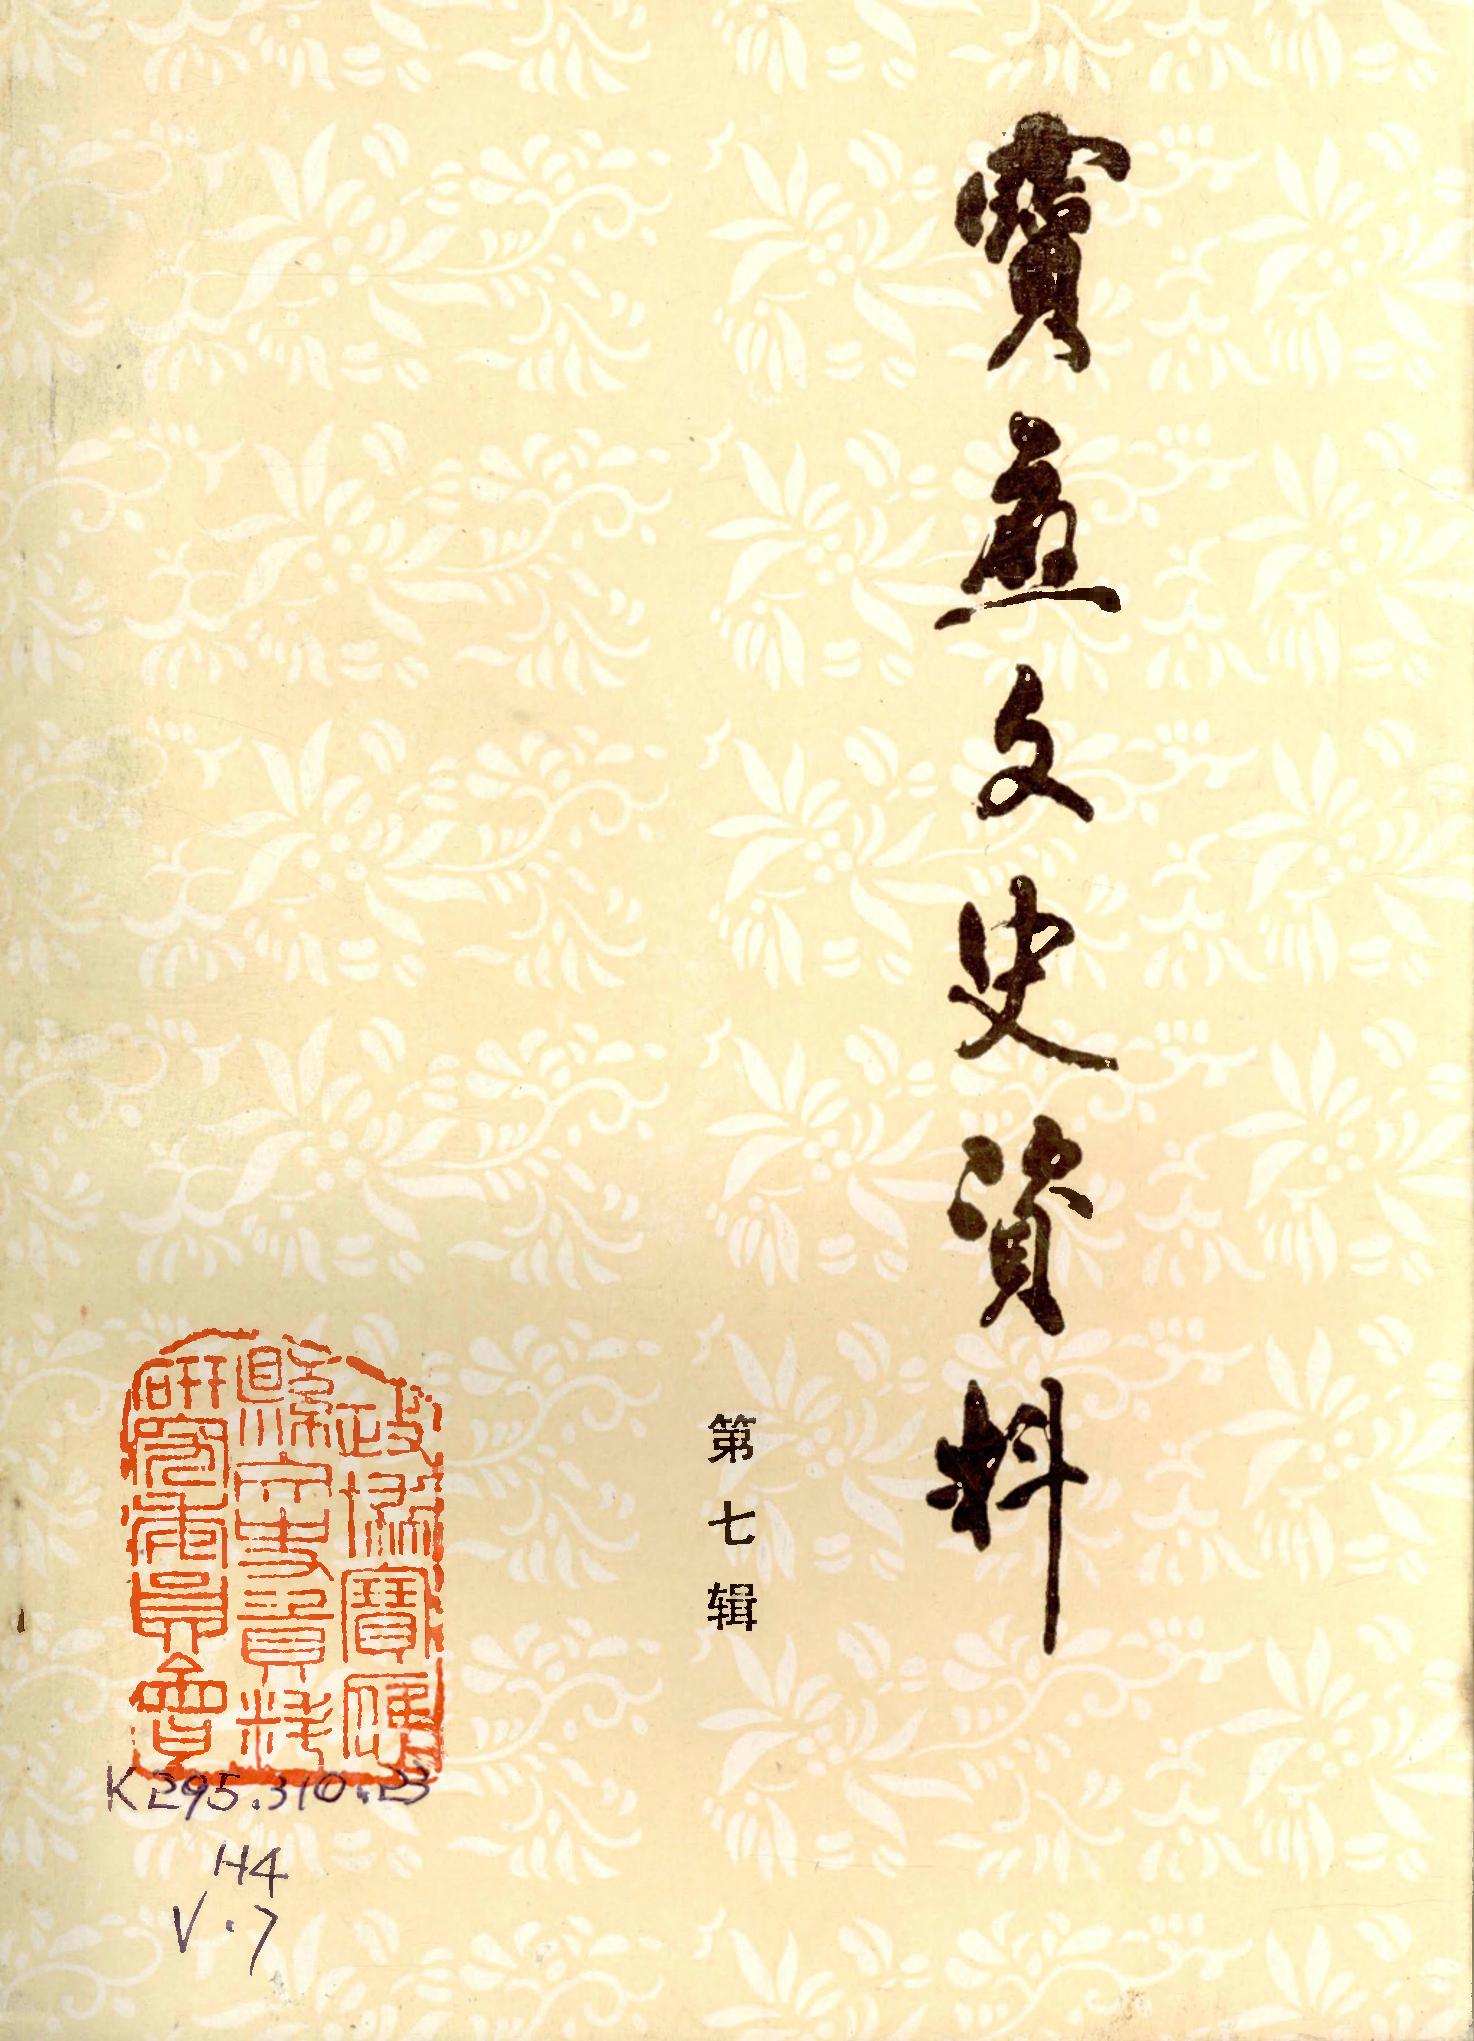 寶應文史資料
第七辑
政協寶應
縣文史資料
研究委員會
K295.310.23
H4
V.7